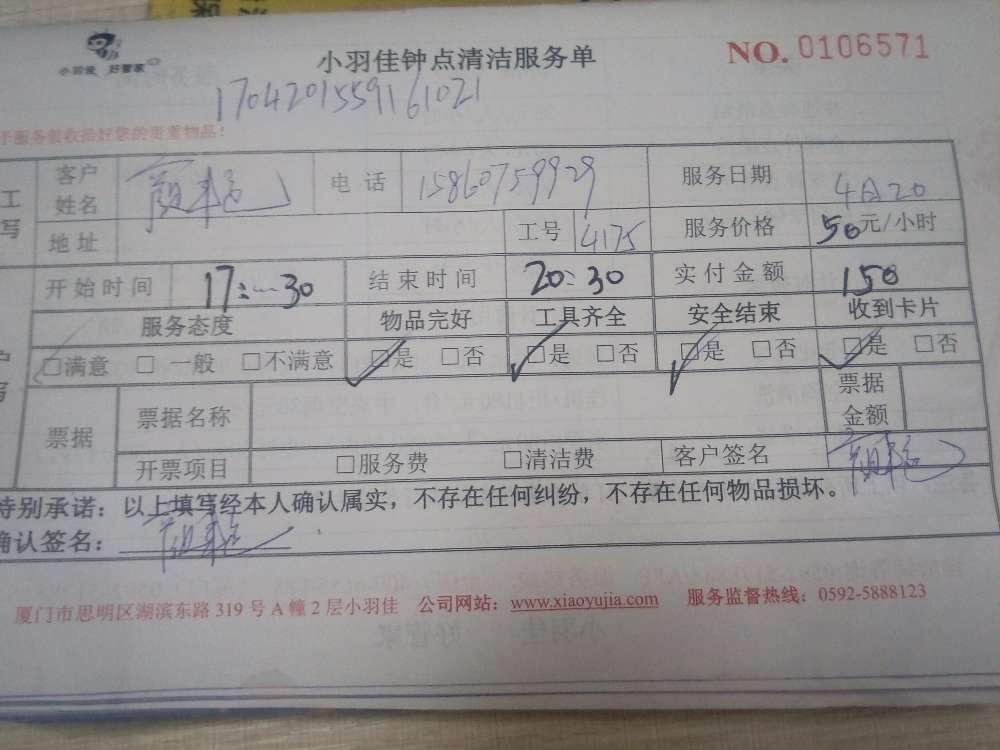 小羽佳 好管家
小羽佳钟点清洁服务单
NO. 0106571
1704201559161021
于服务前收拾好您的贵重物品!
工 客户姓名 电 话 15860759929 服务日期 4月20
写 地 址 工号 4175 服务价格 50元/小时
开始时间 17:30 结束时间 20:30 实付金额 150
服务态度 物品完好 工具齐全 安全结束 收到卡片
户 □满意 □ 一般 □不满意 □是 □否 □是 □否 □是 □否 □是 □否
写 票据 票据名称 票据金额
开票项目 □服务费 □清洁费 客户签名
特别承诺：以上填写经本人确认属实，不存在任何纠纷，不存在任何物品损坏。
确认签名：
厦门市思明区湖滨东路 319 号 A 幢 2 层小羽佳 公司网站：www.xiaoyujia.com 服务监督热线：0592-5888123